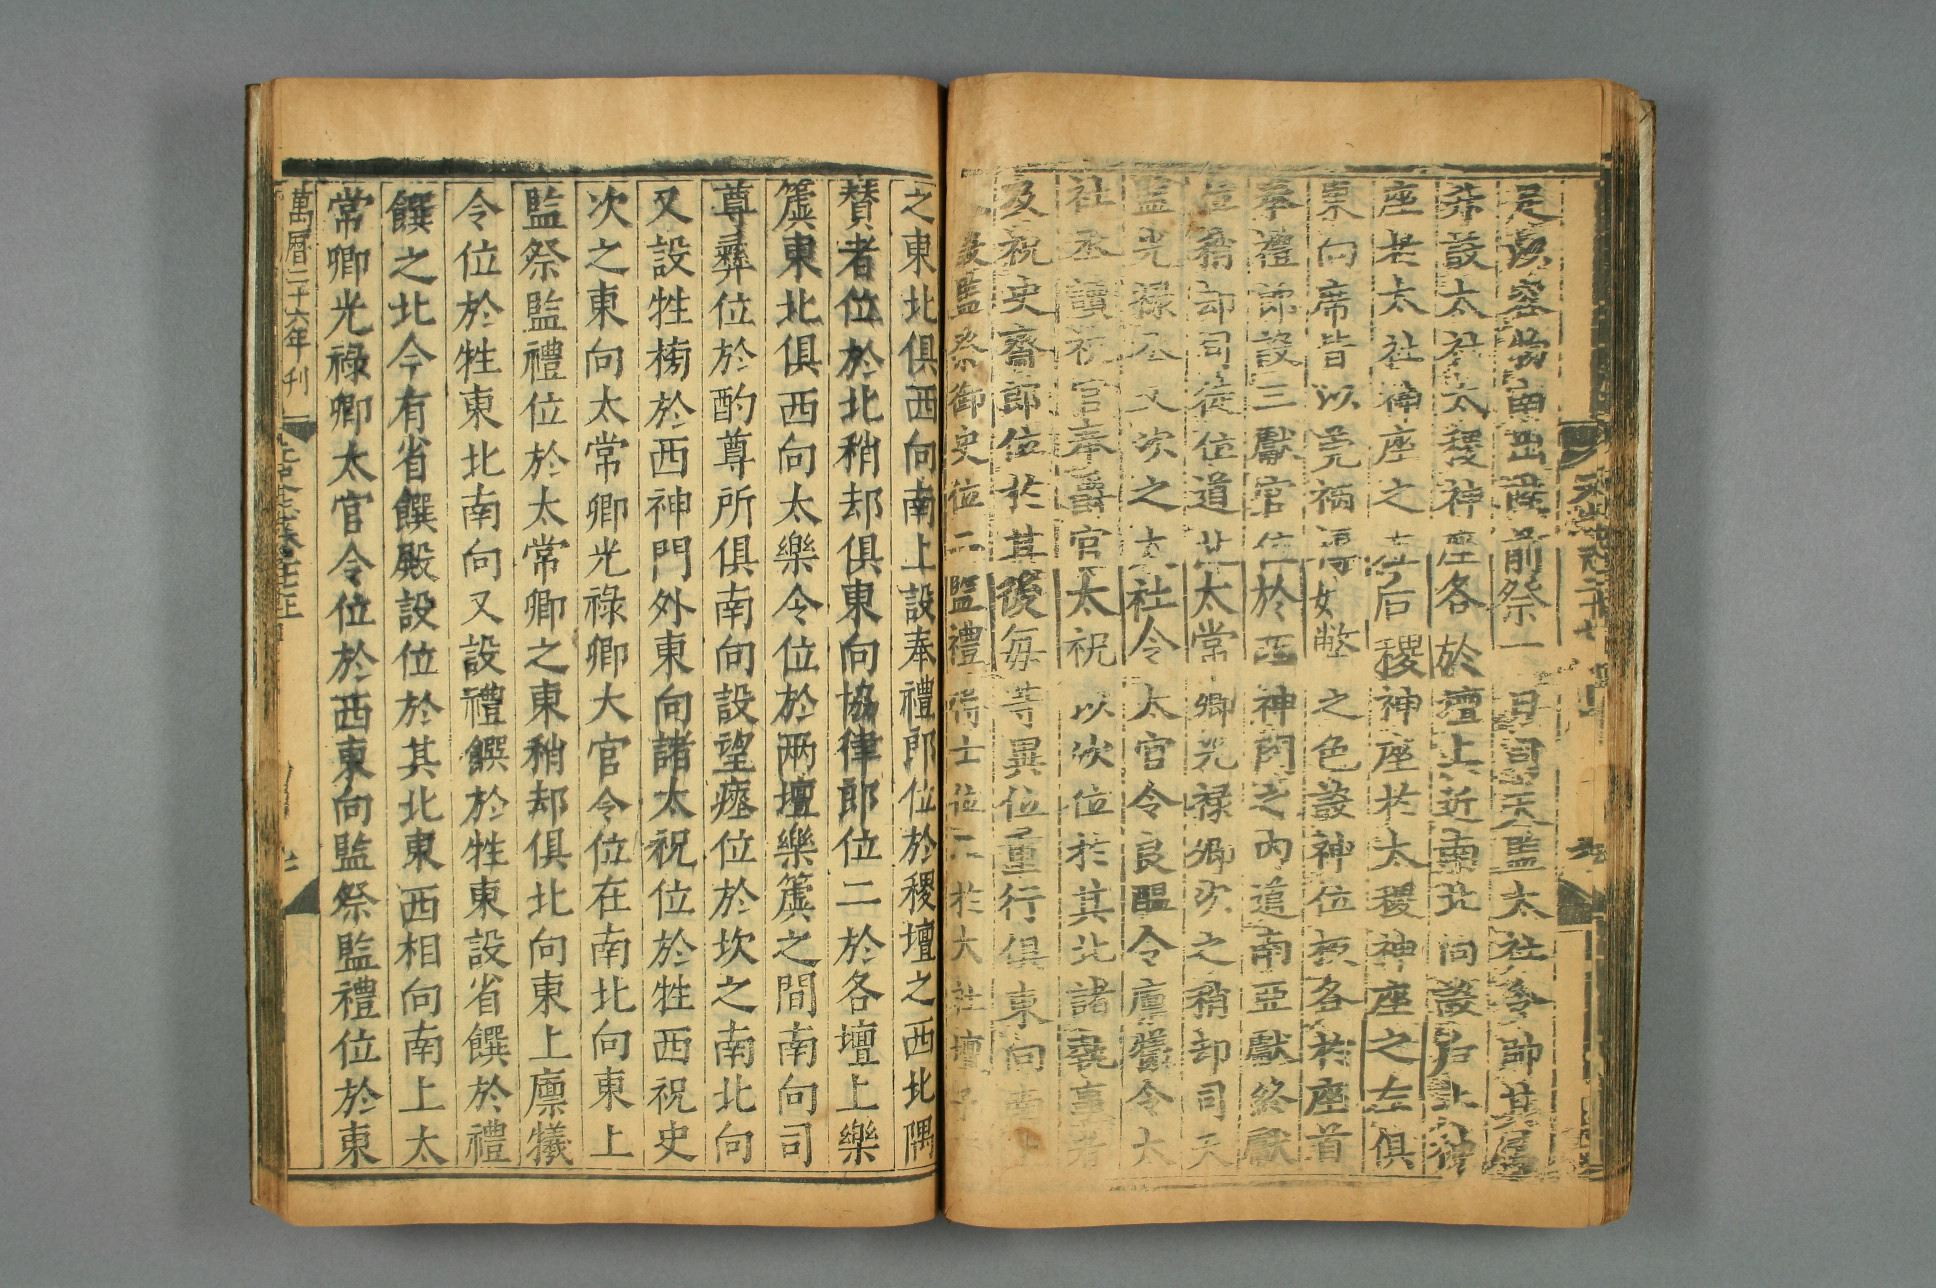 尺洩容物南出陛前祭一日司天監太社令帥其屬
升設太社太稷神座各於壇上近南北向設后土神
座於太社神座之左后稷神座於太稷神座之左俱
東向席皆以莞裀褥如幣之色設神位版各於座首
奉禮郎設三獻官位於西神門之內道南亞獻終獻
位稍却司徒位道北太常卿光祿卿次之稍却司天
監光祿丞又次之太社令太官令良醞令廩犧令太
社丞讀祝官奉爵官太祝以次位於其北諸執事者
及祝史齋郎位於其後每等異位重行俱東向南上
又設監祭御史位二監禮博士位二於太社壇子
之東北俱西向南上設奉禮郎位於稷壇之西北隅
賛者位於北稍却俱東向協律郎位二於各壇上樂
簴東北俱西向太樂令位於兩壇樂簴之間南向司
尊彝位於酌尊所俱南向設望瘞位於坎之南北向
又設牲榜於西神門外東向諸太祝位於牲西祝史
次之東向太常卿光祿卿大官令位在南北向東上
監祭監禮位於太常卿之東稍却俱北向東上廩犧
令位於牲東北南向又設禮饌於牲東設省饌於禮
饌之北今有省饌殿設位於其北東西相向南上太
常卿光祿卿太官令位於西東向監祭監禮位於東
萬曆二十六年刊